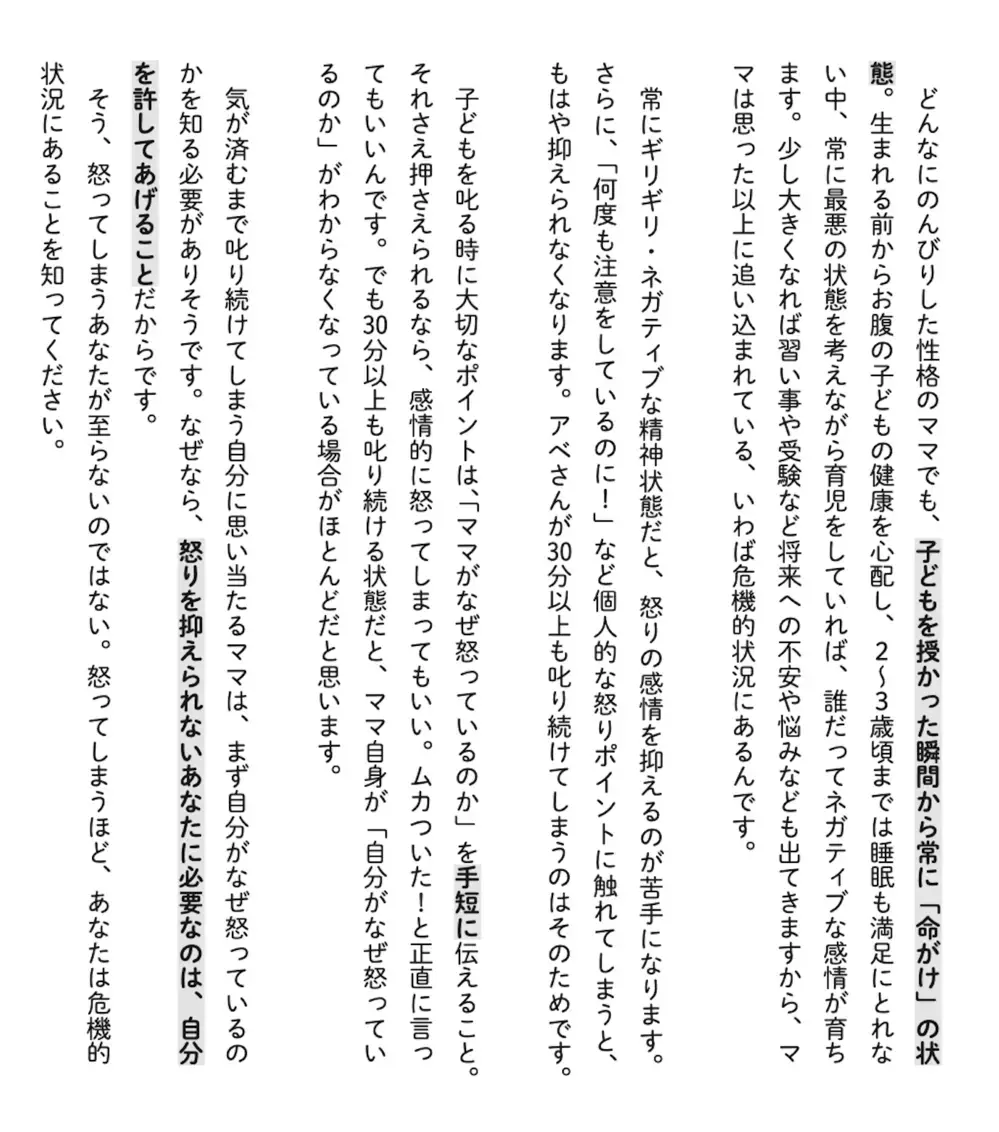 どんなにのんびりした性格のママでも、子どもを授かった瞬間から常に「命がけ」の状
態。生まれる前からお腹の子どもの健康を心配し、2〜3歳頃までは睡眠も満足にとれな
い中、常に最悪の状態を考えながら育児をしていれば、誰だってネガティブな感情が育ち
ます。少し大きくなれば習い事や受験など将来への不安や悩みなども出てきますから、マ
マは思った以上に追い込まれている、いわば危機的状況にあるんです。
常にギリギリ・ネガティブな精神状態だと、怒りの感情を抑えるのが苦手になります。
さらに、「何度も注意をしているのに！」など個人的な怒りポイントに触れてしまうと、
もはや抑えられなくなります。アベさんが30分以上も叱り続けてしまうのはそのためです。
子どもを叱る時に大切なポイントは、「ママがなぜ怒っているのか」を手短に伝えること。
それさえ押さえられるなら、感情的に怒ってしまってもいい。ムカついた！と正直に言っ
てもいいんです。でも30分以上も叱り続ける状態だと、ママ自身が「自分がなぜ怒ってい
るのか」がわからなくなっている場合がほとんどだと思います。
気が済むまで叱り続けてしまう自分に思い当たるママは、まず自分がなぜ怒っているの
かを知る必要がありそうです。なぜなら、怒りを抑えられないあなたに必要なのは、自分
を許してあげることだからです。
そう、怒ってしまうあなたが至らないのではない。怒ってしまうほど、あなたは危機的
状況にあることを知ってください。